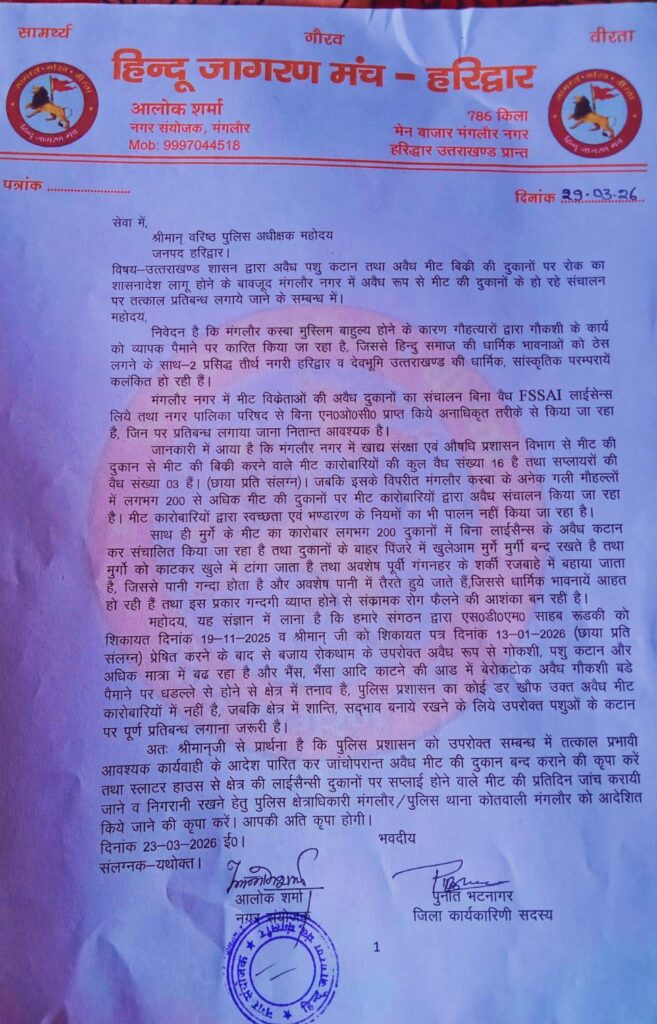 सामर्थ्य गौरव वीरता
हिन्दू जागरण मंच – हरिद्वार
आलोक शर्मा
नगर संयोजक, मंगलौर
Mob: 9997044518
786 किला
मेन बाजार मंगलौर नगर
हरिद्वार उत्तराखण्ड प्रान्त
सामर्थ्य गौरव वीरता
हिन्दू जागरण मंच
सामर्थ्य गौरव वीरता
हिन्दू जागरण मंच
पत्रांक ........................
दिनांक 29-03-26
सेवा में,
श्रीमान् वरिष्ठ पुलिस अधीक्षक महोदय
जनपद हरिद्वार।
विषय–उत्तराखण्ड शासन द्वारा अवैध पशु कटान तथा अवैध मीट बिक्री की दुकानों पर रोक का
शासनादेश लागू होने के बावजूद मंगलौर नगर में अवैध रूप से मीट की दुकानों के हो रहे संचालन
पर तत्काल प्रतिबन्ध लगाये जाने के सम्बन्ध में।
महोदय,
निवेदन है कि मंगलौर कस्बा मुस्लिम बाहुल्य होने के कारण गौहत्यारों द्वारा गौकशी के कार्य
को व्यापक पैमाने पर कारित किया जा रहा है, जिससे हिन्दु समाज की धार्मिक भावनाओं को ठेस
लगने के साथ–2 प्रसिद्ध तीर्थ नगरी हरिद्वार व देवभूमि उत्तराखण्ड की धार्मिक, सांस्कृतिक परम्परायें
कलंकित हो रही हैं।
मंगलौर नगर में मीट विक्रेताओं की अवैध दुकानों का संचालन बिना वैध FSSAI लाईसेन्स
लिये तथा नगर पालिका परिषद से बिना एन0ओ0सी0 प्राप्त किये अनाधिकृत तरीके से किया जा रहा
है, जिन पर प्रतिबन्ध लगाया जाना नितान्त आवश्यक है।
जानकारी में आया है कि मंगलौर नगर में खाद्य संरक्षा एवं औषधि प्रशासन विभाग से मीट की
दुकान से मीट की बिक्री करने वाले मीट कारोबारियों की कुल वैध संख्या 16 है तथा सप्लायरों की
वैध संख्या 03 हैं। (छाया प्रति संलग्न)। जबकि इसके विपरीत मंगलौर कस्बा के अनेक गली मौहल्लों
में लगभग 200 से अधिक मीट की दुकानों पर मीट कारोबारियों द्वारा अवैध संचालन किया जा रहा
है। मीट कारोबारियों द्वारा स्वच्छता एवं भण्डारण के नियमों का भी पालन नहीं किया जा रहा है।
साथ ही मुर्गे के मीट का कारोबार लगभग 200 दुकानों में बिना लाईसैन्स के अवैध कटान
कर संचालित किया जा रहा है तथा दुकानों के बाहर पिंजरे में खुलेआम मुर्गे मुर्गी बन्द रखते है तथा
मुर्गो को काटकर खुले में टांगा जाता है तथा अवशेष पूर्वी गंगनहर के शर्की रजबाहे में बहाया जाता
है, जिससे पानी गन्दा होता है और अवशेष पानी में तैरते हुये जाते हैं,जिससे धार्मिक भावनायें आहत
हो रही हैं तथा इस प्रकार गन्दगी व्याप्त होने से संक्रामक रोग फैलने की आशंका बन रही है।
महोदय, यह संज्ञान में लाना है कि हमारे संगठन द्वारा एस0डी0एम0 साहब रूडकी को
शिकायत दिनांक 19-11-2025 व श्रीमान् जी को शिकायत पत्र दिनांक 13-01-2026 (छाया प्रति
संलग्न) प्रेषित करने के बाद से बजाय रोकथाम के उपरोक्त अवैध रूप से गोकशी, पशु कटान और
अधिक मात्रा में बढ रहा है और भैंस, भैंसा आदि काटने की आड में बेरोकटोक अवैध गौकशी बडे
पैमाने पर धडल्ले से होने से क्षेत्र में तनाव है, पुलिस प्रशासन का कोई डर खौफ उक्त अवैध मीट
कारोबारियों में नहीं है, जबकि क्षेत्र में शान्ति, सद्भाव बनाये रखने के लिये उपरोक्त पशुओं के कटान
पर पूर्ण प्रतिबन्ध लगाना जरूरी है।
अतः श्रीमान्जी से प्रार्थना है कि पुलिस प्रशासन को उपरोक्त सम्बन्ध में तत्काल प्रभावी
आवश्यक कार्यवाही के आदेश पारित कर जांचोपरान्त अवैध मीट की दुकान बन्द कराने की कृपा करें
तथा स्लाटर हाउस से क्षेत्र की लाईसैन्सी दुकानों पर सप्लाई होने वाले मीट की प्रतिदिन जांच करायी
जाने व निगरानी रखने हेतु पुलिस क्षेत्राधिकारी मंगलौर/पुलिस थाना कोतवाली मंगलौर को आदेशित
किये जाने की कृपा करें। आपकी अति कृपा होगी।
दिनांक 23-03-2026 ई0। भवदीय
संलग्नक-यथोक्त।
आलोक शर्मा
नगर संयोजक
पुनीत भटनागर
जिला कार्यकारिणी सदस्य
1
नगर संयोजक